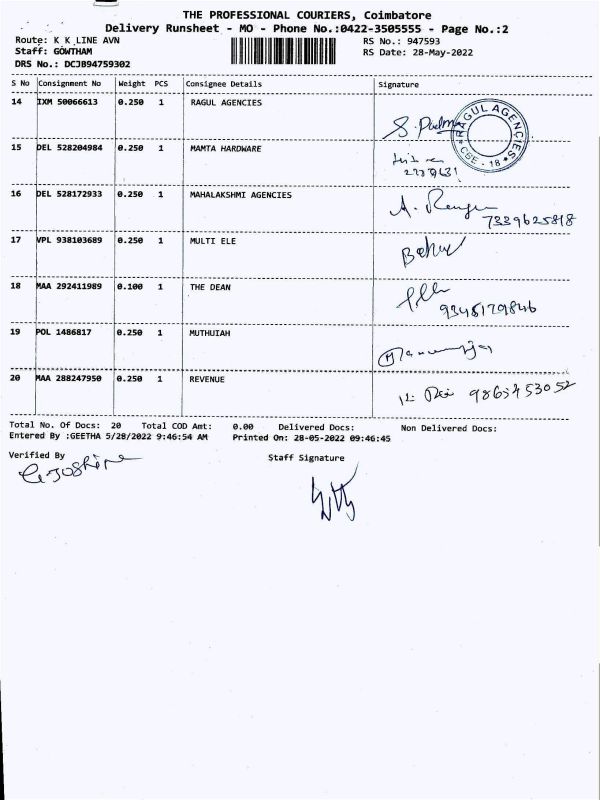 THE PROFESSIONAL COURIERS, Coimbatore
Delivery Runsheet - MO - Phone No.:0422-3505555 - Page No.:2
Route: K K LINE AVN RS No.: 947593
Staff: GOWTHAM RS Date: 28-May-2022
DRS No.: DCJB94759302
S No Consignment No Weight PCS Consignee Details Signature
14 IXM 50066613 0.250 1 RAGUL AGENCIES
S. Padma
RAGUL AGENCIES * CBE - 18 *
15 DEL 528204984 0.250 1 MAMTA HARDWARE
16 DEL 528172933 0.250 1 MAHALAKSHMI AGENCIES
7339625818
17 VPL 938103689 0.250 1 MULTI ELE
18 MAA 292411989 0.100 1 THE DEAN
9345179846
19 POL 1486817 0.250 1 MUTHUIAH
20 MAA 288247950 0.250 1 REVENUE
Total No. Of Docs: 20 Total COD Amt: 0.00 Delivered Docs: Non Delivered Docs:
Entered By :GEETHA 5/28/2022 9:46:54 AM Printed On: 28-05-2022 09:46:45
Verified By Staff Signature